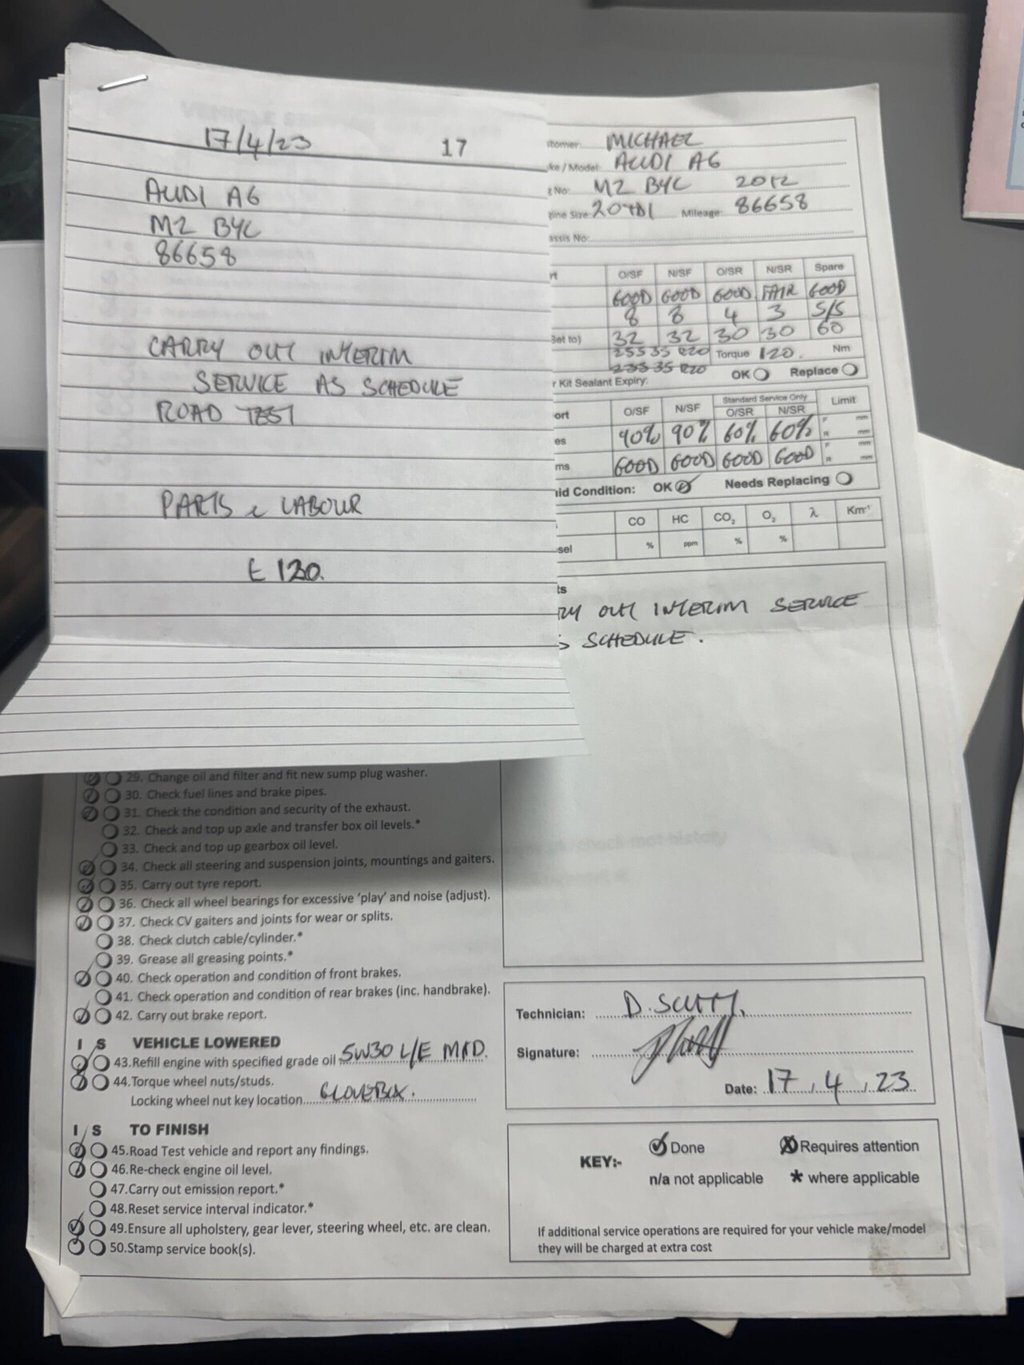 17/4/23 17
AUDI A6
M2 BYC
86658
CARRY OUT INTERIM
SERVICE AS SCHEDULE
ROAD TEST
PARTS & LABOUR
£120.
tomer: MICHAEL
ke / Model: AUDI A6
g No: M2 BYC 2012
gine Size: 20TDI Mileage: 86658
assis No:
rt O/SF N/SF O/SR N/SR Spare
GOOD GOOD GOOD FAIR GOOD
8 8 4 3 S/S
Set to) 32 32 30 30 60
255 35 R20 Torque 120. Nm
255 35 R20
r Kit Sealant Expiry: OK Replace
ort O/SF N/SF Standard Service Only Limit
O/SR N/SR
es 90% 90% 60% 60% F mm
R mm
ms GOOD GOOD GOOD GOOD F mm
R mm
uid Condition: OK Needs Replacing
CO HC CO₂ O₂ λ Km⁻¹
sel % ppm % %
ts
RY OUT INTERIM SERVICE
S SCHEDULE.
29. Change oil and filter and fit new sump plug washer.
30. Check fuel lines and brake pipes.
31. Check the condition and security of the exhaust.
32. Check and top up axle and transfer box oil levels.*
33. Check and top up gearbox oil level.
34. Check all steering and suspension joints, mountings and gaiters.
35. Carry out tyre report.
36. Check all wheel bearings for excessive 'play' and noise (adjust).
37. Check CV gaiters and joints for wear or splits.
38. Check clutch cable/cylinder.*
39. Grease all greasing points.*
40. Check operation and condition of front brakes.
41. Check operation and condition of rear brakes (inc. handbrake).
42. Carry out brake report.
I S VEHICLE LOWERED
43.Refill engine with specified grade oil 5W30 L/E MID.
44.Torque wheel nuts/studs.
Locking wheel nut key location GLOVEBOX.
I S TO FINISH
45.Road Test vehicle and report any findings.
46.Re-check engine oil level.
47.Carry out emission report.*
48.Reset service interval indicator.*
49.Ensure all upholstery, gear lever, steering wheel, etc. are clean.
50.Stamp service book(s).
Technician: D. SCUTT,
Signature:
Date: 17, 4, 23
KEY:- Done Requires attention
n/a not applicable * where applicable
If additional service operations are required for your vehicle make/model
they will be charged at extra cost